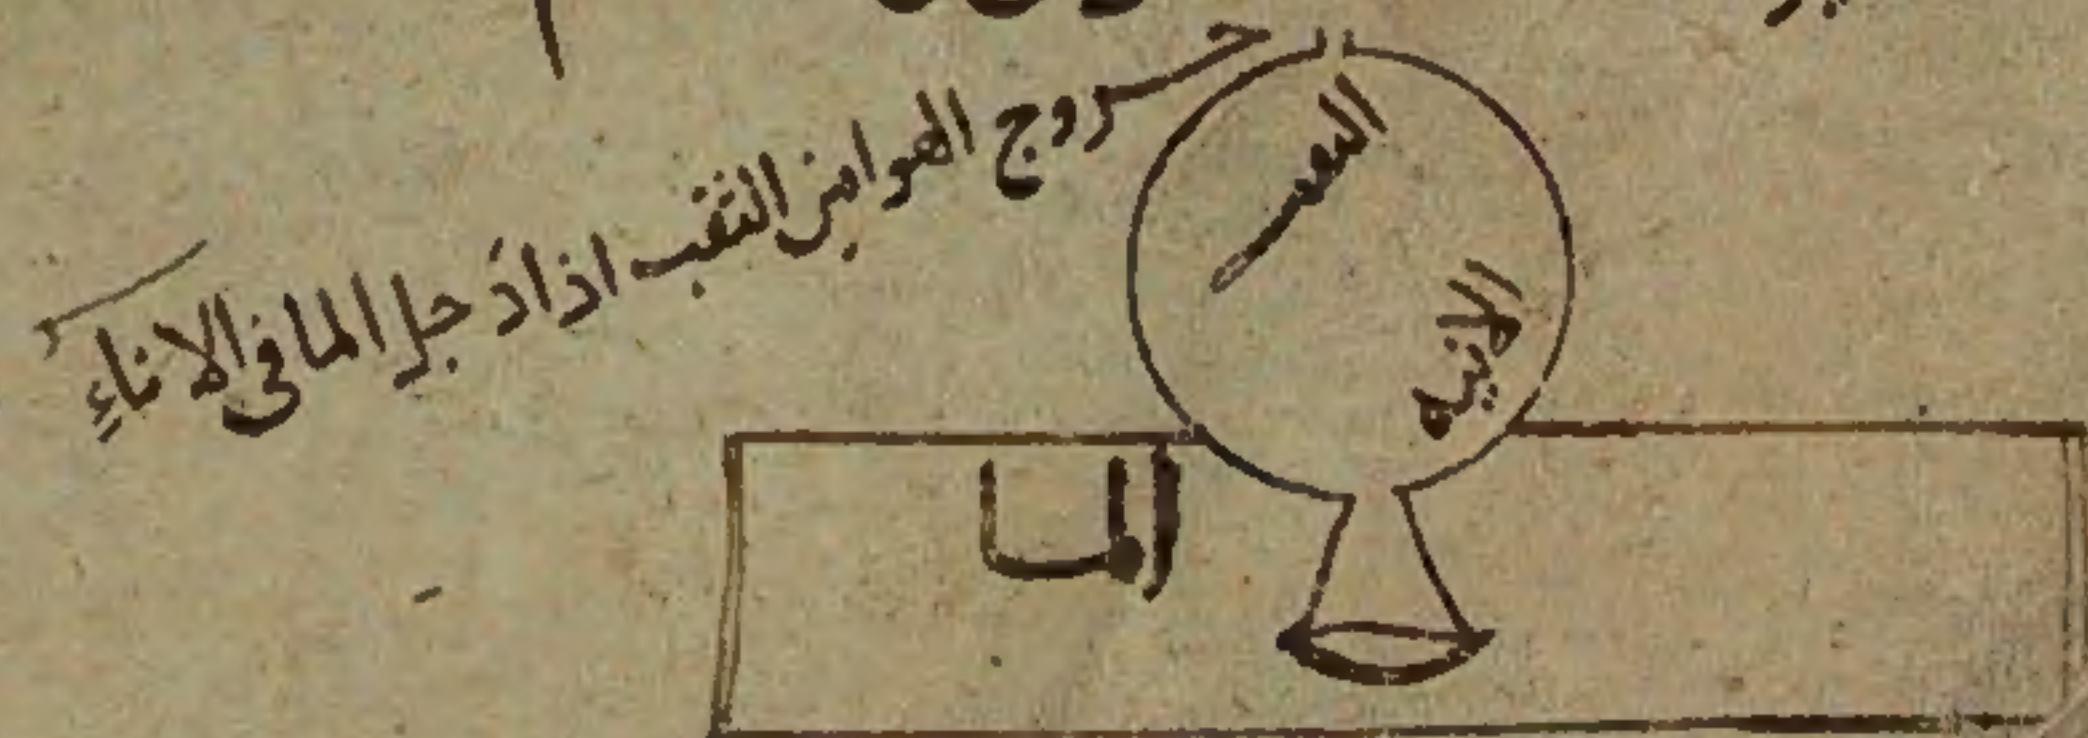 خروج الهوا من الثقب اذا دخل الما فى الاناءِ
الانيه
الما